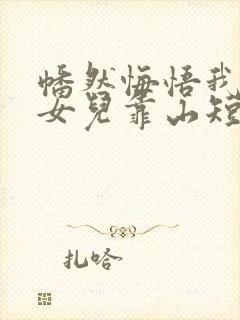 幡然悔悟我
女兒靠山短
扎哈